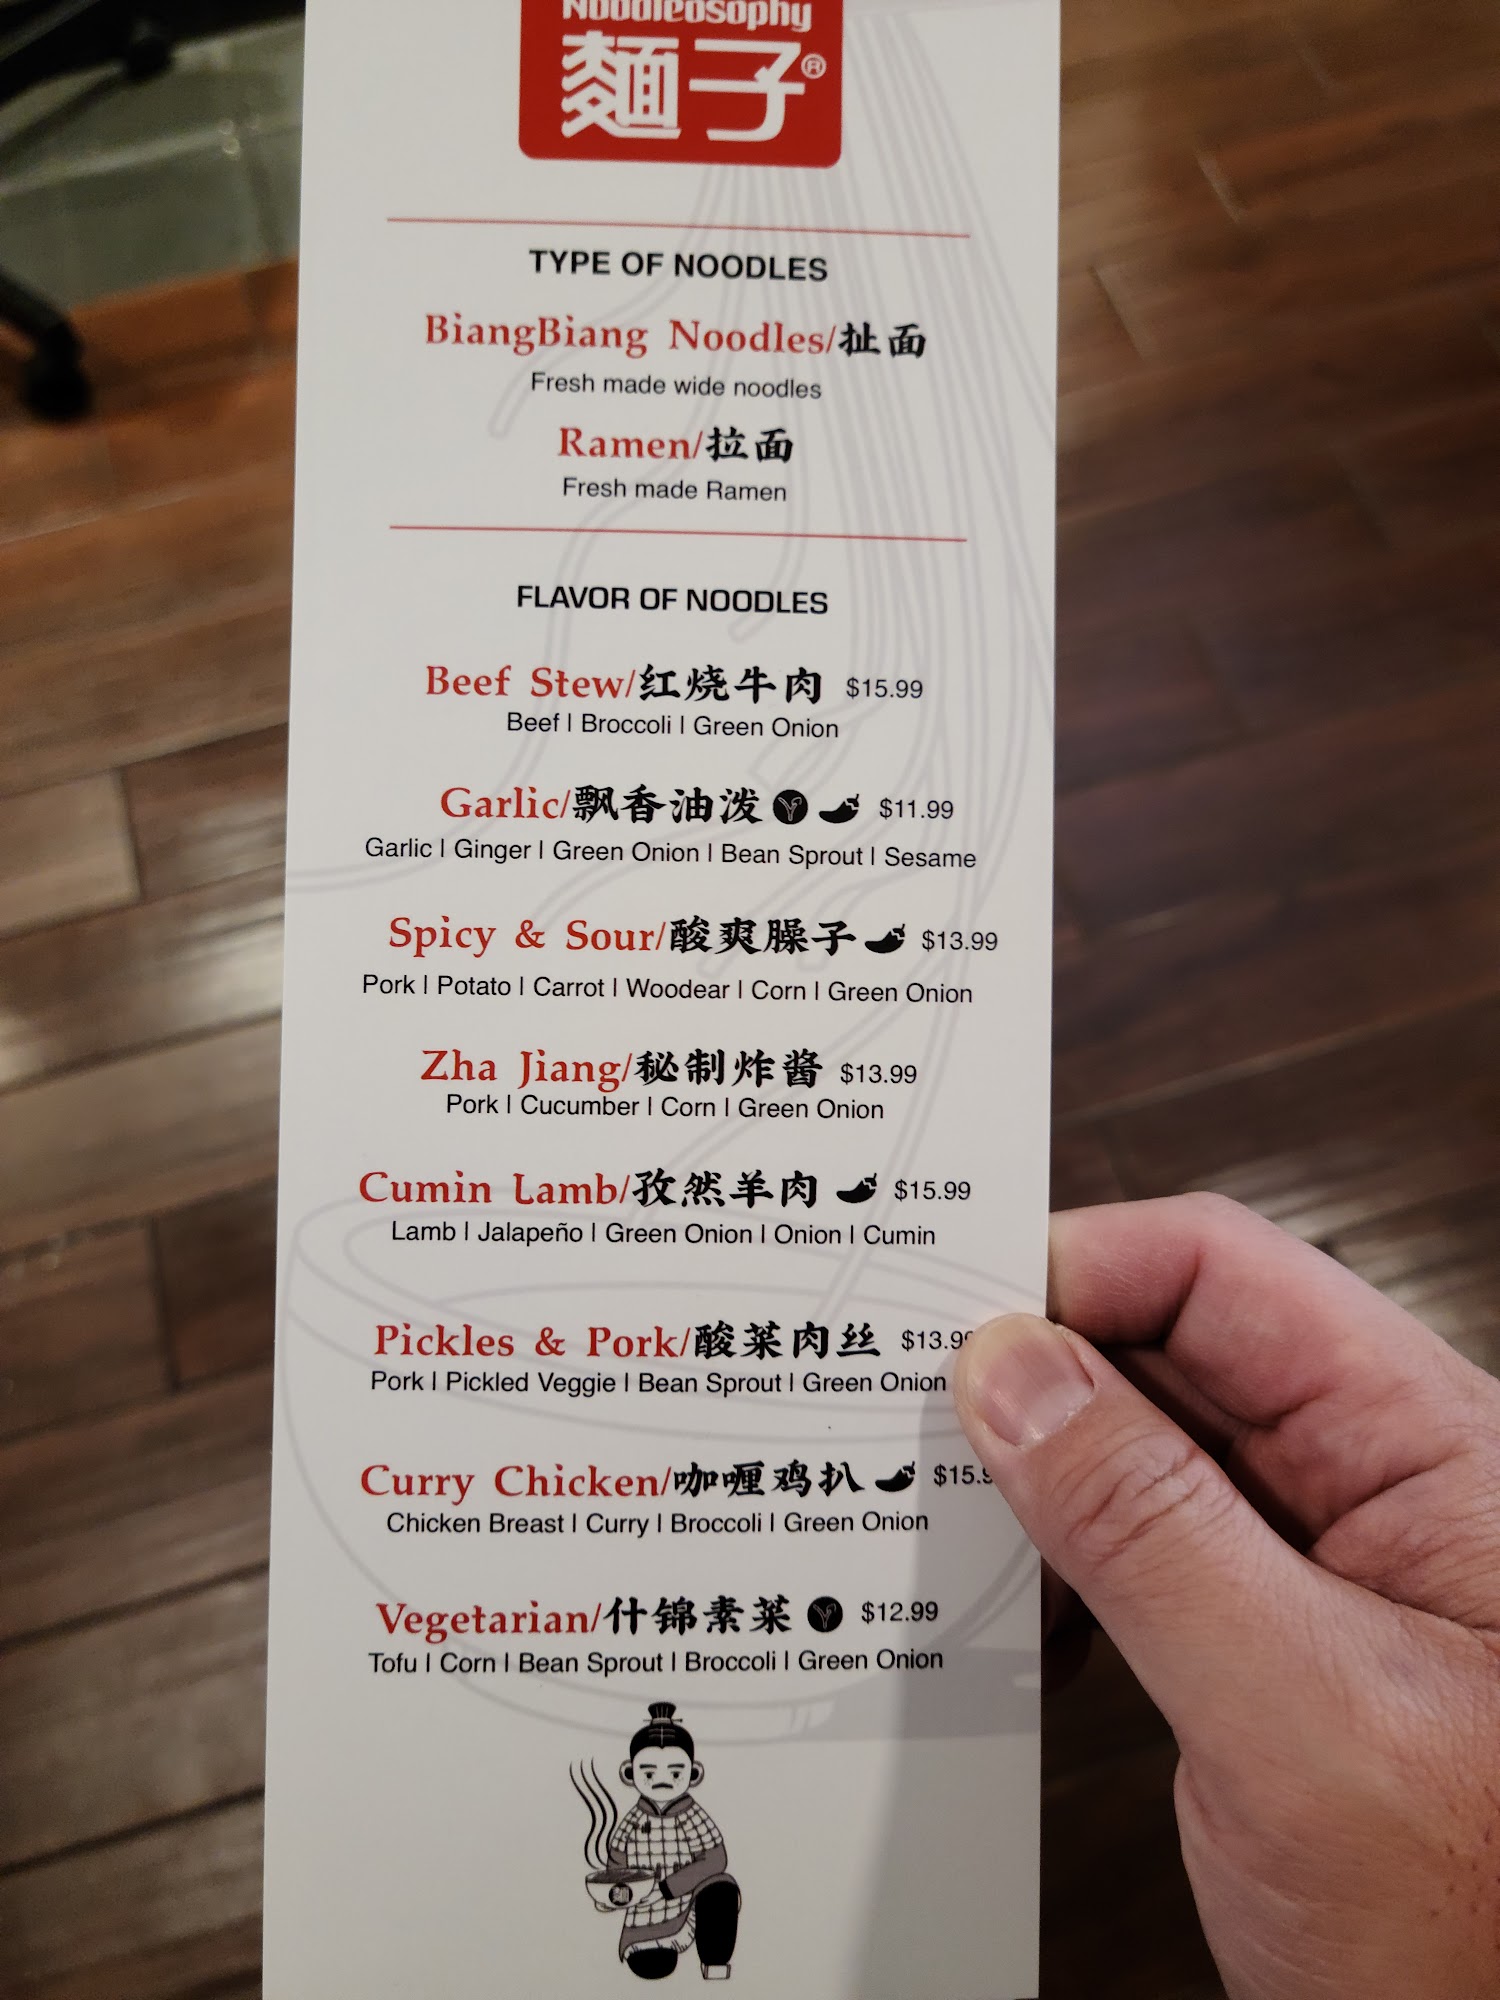 Noodleosophy
麵子®
TYPE OF NOODLES
BiangBiang Noodles/扯面
Fresh made wide noodles
Ramen/拉面
Fresh made Ramen
FLAVOR OF NOODLES
Beef Stew/红烧牛肉 $15.99
Beef | Broccoli | Green Onion
Garlic/飘香油泼 $11.99
Garlic | Ginger | Green Onion | Bean Sprout | Sesame
Spicy & Sour/酸爽臊子 $13.99
Pork | Potato | Carrot | Woodear | Corn | Green Onion
Zha Jiang/秘制炸酱 $13.99
Pork | Cucumber | Corn | Green Onion
Cumin Lamb/孜然羊肉 $15.99
Lamb | Jalapeño | Green Onion | Onion | Cumin
Pickles & Pork/酸菜肉丝 $13.9
Pork | Pickled Veggie | Bean Sprout | Green Onion
Curry Chicken/咖喱鸡扒 $15.9
Chicken Breast | Curry | Broccoli | Green Onion
Vegetarian/什锦素菜 $12.99
Tofu | Corn | Bean Sprout | Broccoli | Green Onion